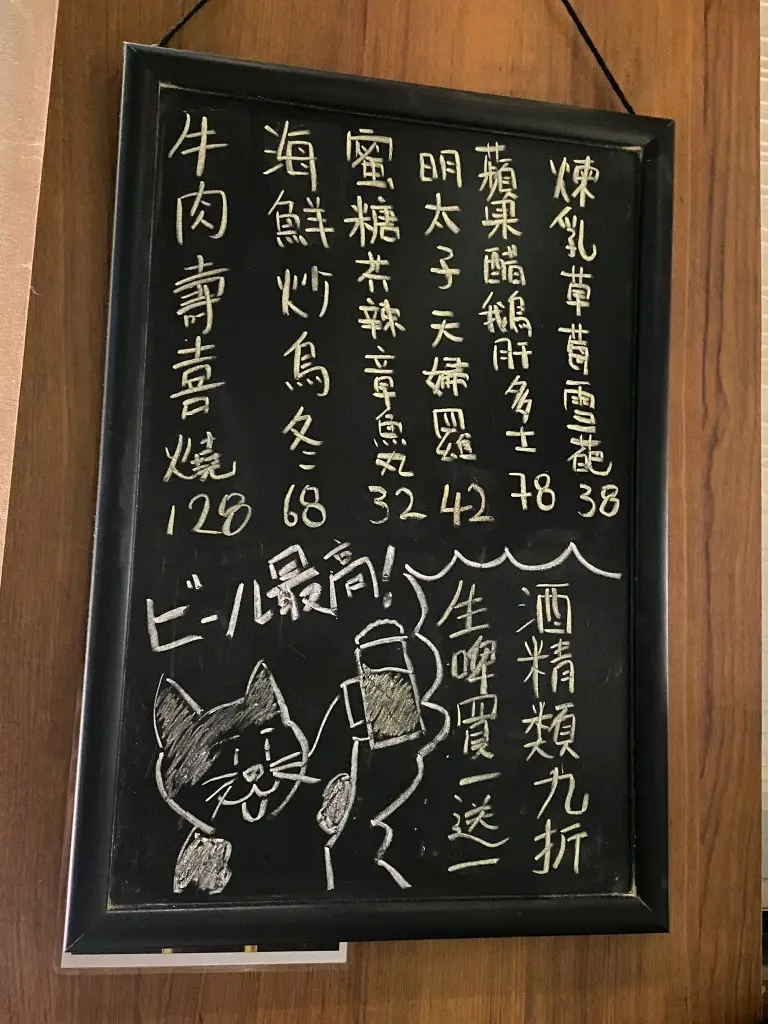 煉乳草莓雪葩 38
蘋果醋鵝肝多士 78
明太子天婦羅 42
蜜糖芥辣章魚丸 32
海鮮炒烏冬 68
牛肉壽喜燒 128
酒精類九折
生啤買一送一
ビール最高!